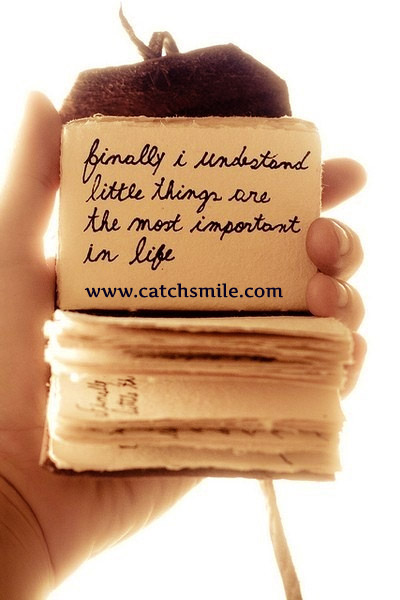 finally i undestand
little things are
the most important
in life
www.catchsmile.com
finally
little th